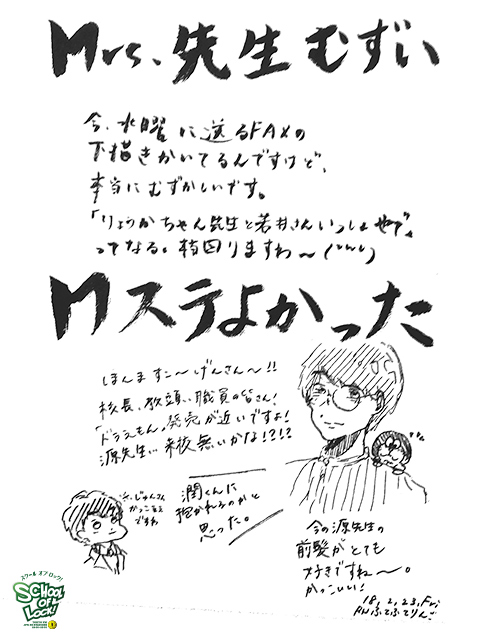 Mrs. 先生むずい
今、水曜に送るFAXの
下描きかいてるんですけど、
本当にむずかしいです。
「りょうかちゃん先生と若井さんいっしょやで」
ってなる。特回りますわ〜
Mステよかった
ほんますご〜げんさん〜!!
校長、教頭、職員の皆さん!
「ドラえもん」発売が近いですよ!
源先生… 来校無いかな!?!?
じゅんさん
かっこええ
ですわ
潤くんに
抱かれるのかと
思った。
今の源先生の
前髪がとても
好きですね〜。
かっこいい!
18. 2. 23. Fri
RN ふてふてりんご
スクール オブ ロック!
SCHOOL
OF
LOCK!